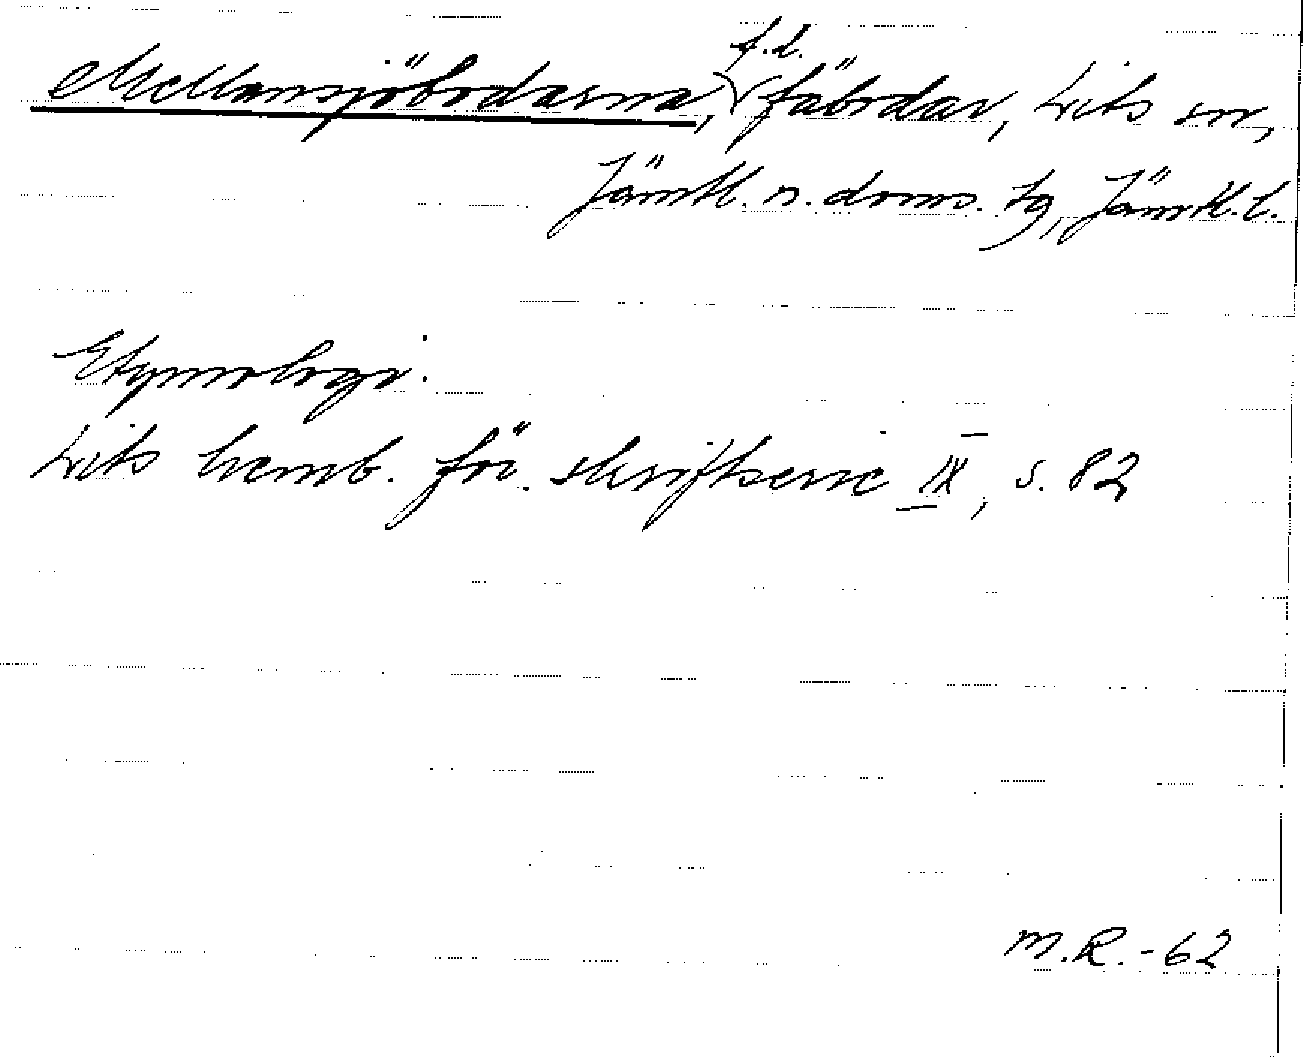 Mellansjöbodarna, f.d. fäbodar, Lits sn,
Jämtl. n. doms. tg, Jämtl. l.
Etymologi:
Lits hemb. för. skriftserie IX, s. 82
M.R.-62